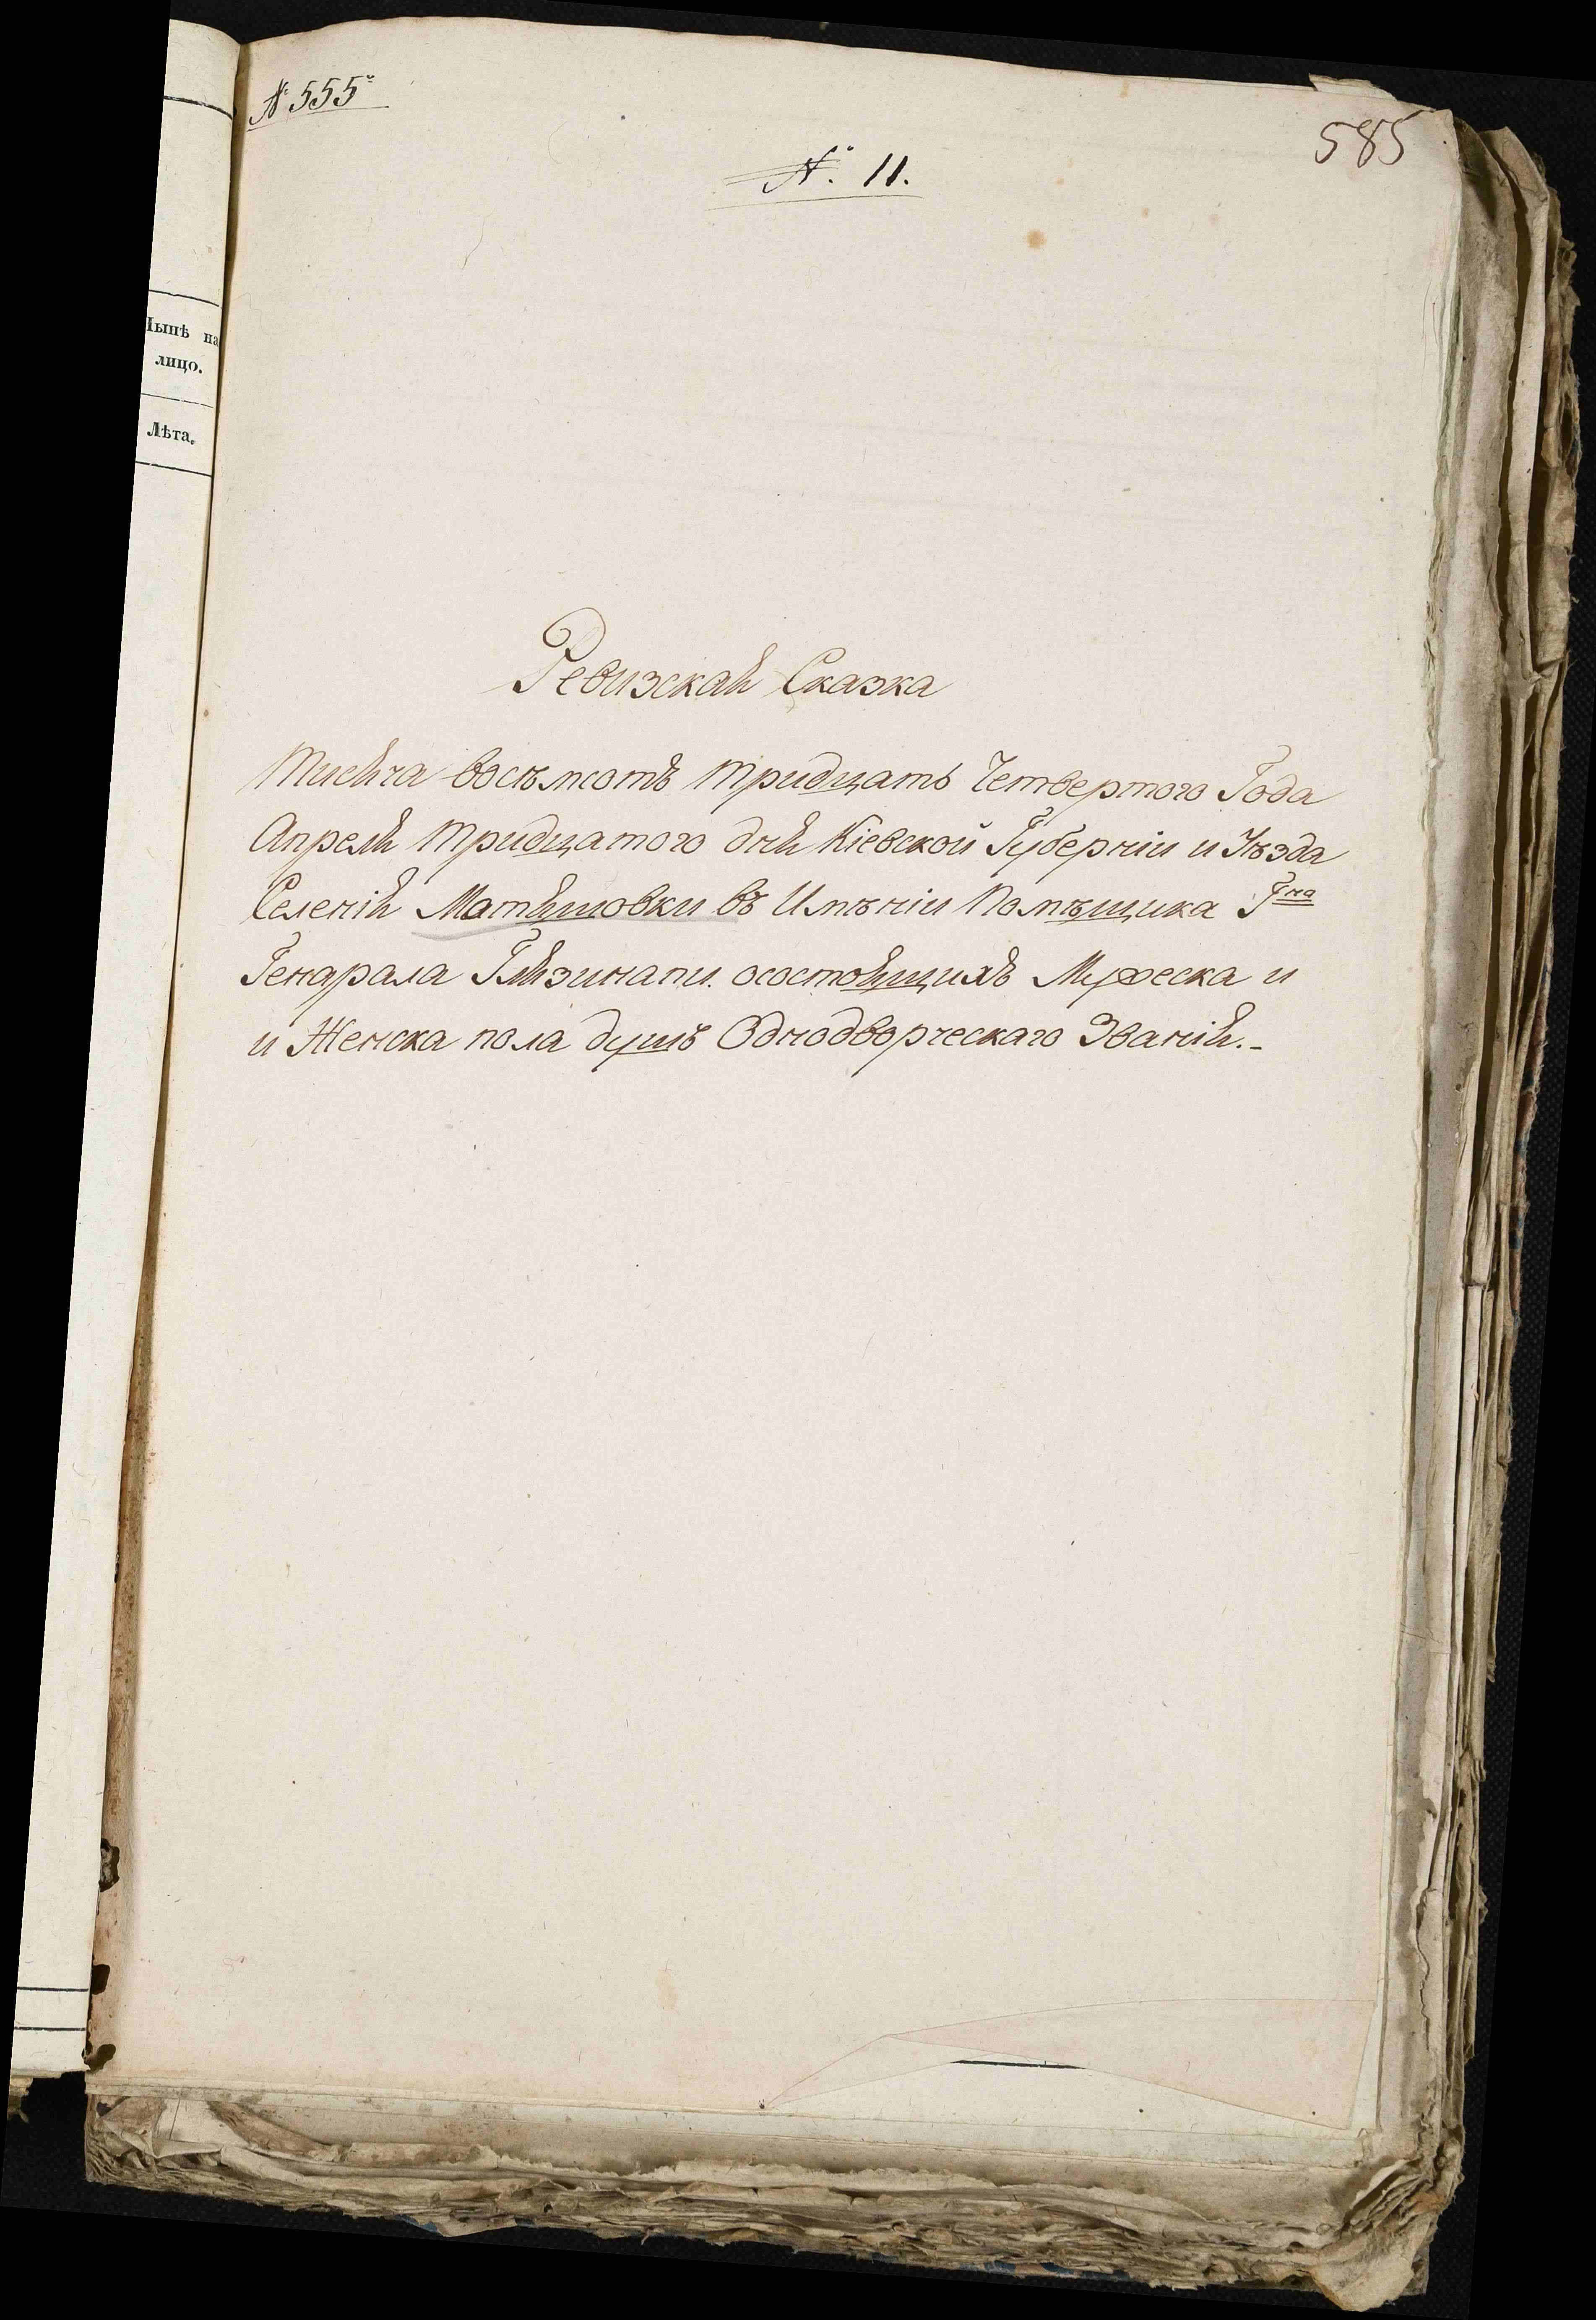 № 555
№. 11.
585
Нынѣ на
лицо.
Лѣта.
Ревизская Сказка
Тисяча восѣмсотъ тридцать Четвертого Года
Апреля тридцатого дня Кіевской Губерніи и Уѣзда
Селенія Матяшовки въ Имѣніи Помѣщика Гна
Генарала осостоящихъ Мужеска и
и Женска пола душъ Однодворческаго Званія.-